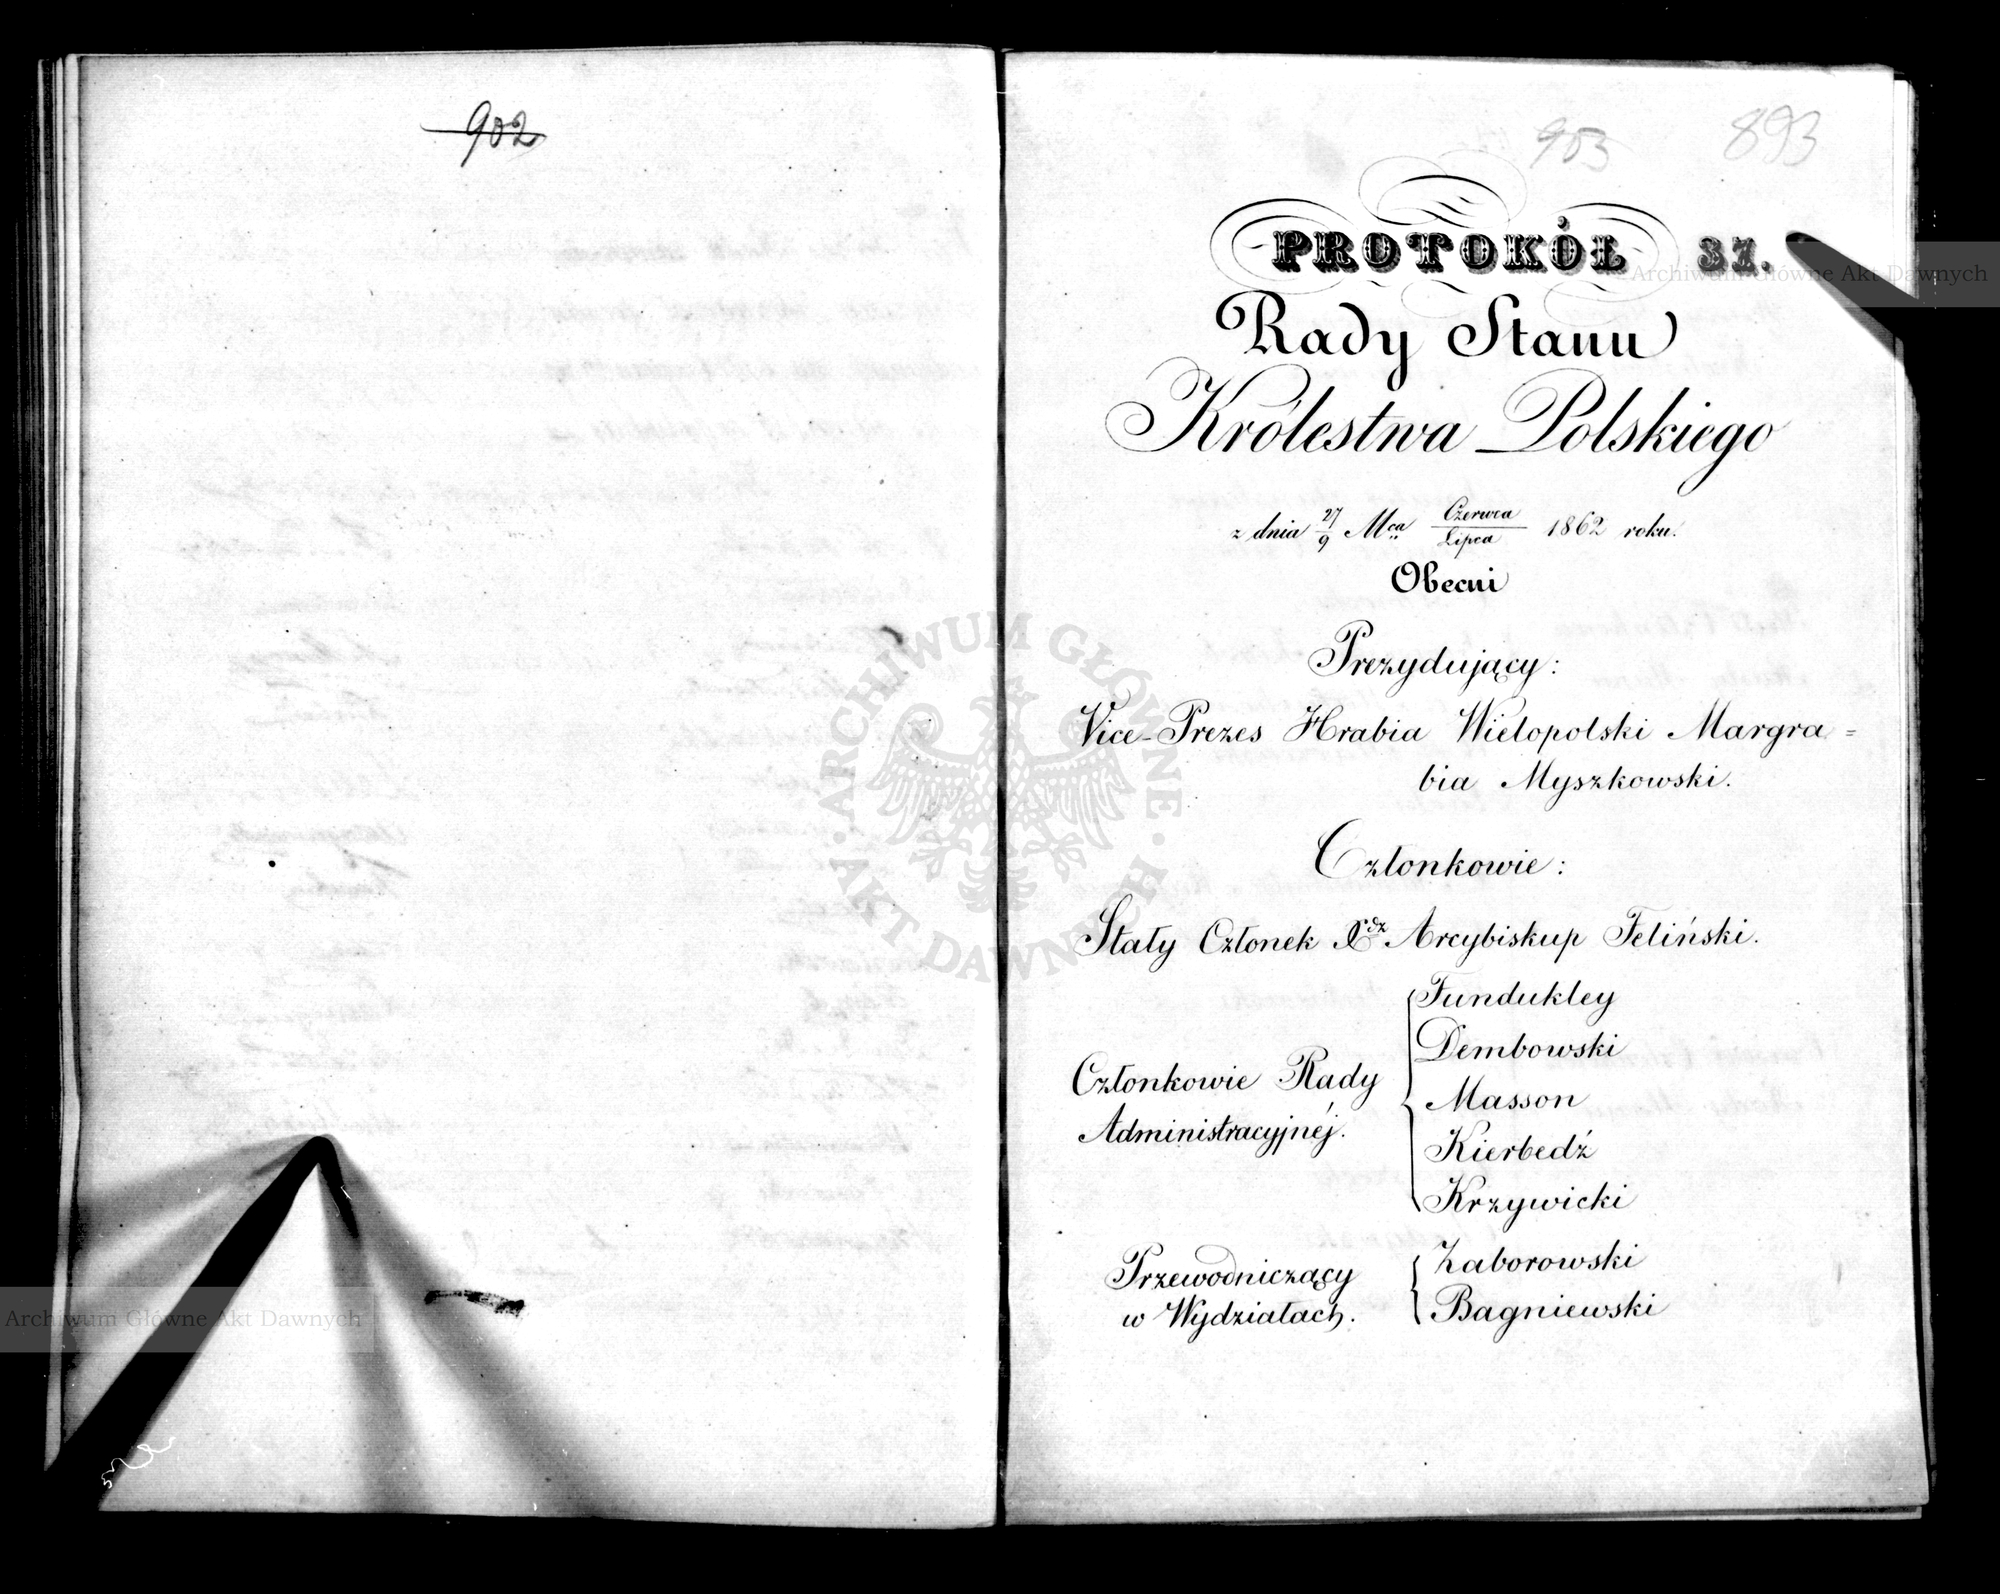 902
903 893
PROTOKÓŁ 37.
Rady Stanu
Królestwa Polskiego
z dnia 27/9 Mca Czerwca/Lipca 1862 roku.
Obecni
Prezydujący:
Vice-Prezes Hrabia Wielopolski Margra=
bia Myszkowski.
Członkowie:
Stały Członek Xdz Arcybiskup Feliński.
Członkowie Rady
Administracyjnéj.
Fundukley
Dembowski
Masson
Kierbedź
Krzywicki
Przewodniczący
w Wydziałach.
Zaborowski
Bagniewski
Archiwum Główne Akt Dawnych
Archiwum Główne Akt Dawnych
ARCHIWUM GŁÓWNE · AKT DAWNYCH ·